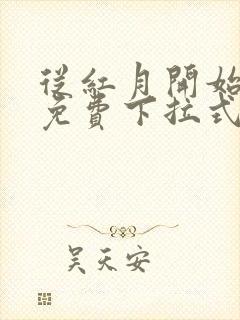 從紅月開始
免費下拉式
吳天安